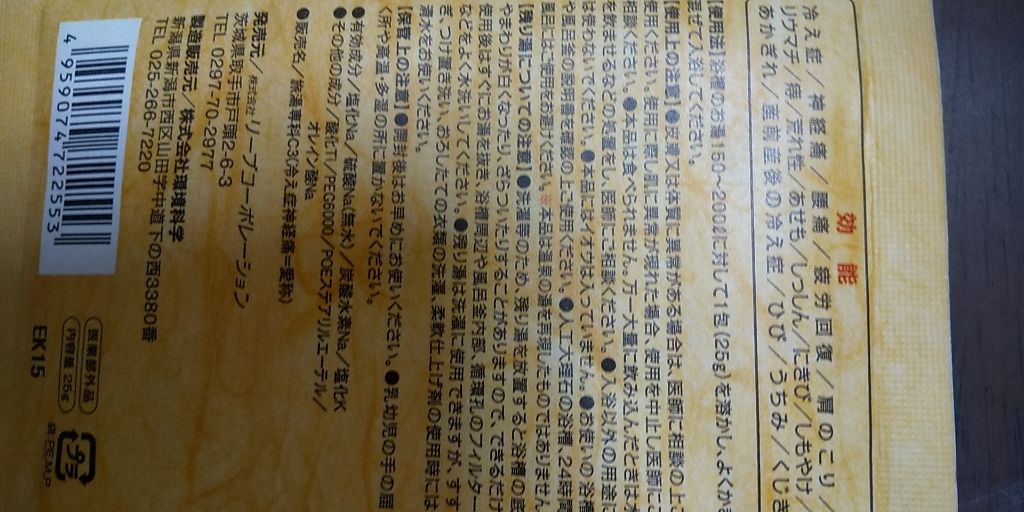 効能
冷え症/神経痛/腰痛/疲労回復/肩のこり/
リウマチ/痔/荒れ性/あせも/しっしん/にきび/しもやけ/
あかぎれ/産前産後の冷え症/ひび/うちみ/くじき
【使用法】浴槽のお湯150〜200ℓに対して1包(25g)を溶かし、よくか
混ぜて入浴してください。
【使用上の注意】●皮膚又は体質に異常がある場合は、医師に相談の上ご
使用ください。使用に際し肌に異常が現れた場合、使用を中止し医師にご
相談ください。●本品は食べられません。万一大量に飲み込んだときは水
を飲ませるなどの処置をし、医師にご相談ください。●入浴以外の用途に
は使わないでください。●本品にはイオウは入っていません。●お使いの浴槽
や風呂釜の説明書を確認の上ご使用ください。●人工大理石の浴槽、24時間
風呂にはご使用をお避けください。※本品は温泉の湯を再現したものではありません。
【残り湯についての注意】●洗濯等のため、残り湯を放置すると浴槽の底
やまわりが白くなったり、ざらついたりすることがありますので、できるだけ
使用後はすぐにお湯を抜き、浴槽周辺や風呂釜内部、循環孔のフィルター
などをよく水洗いしてください。●残り湯は洗濯に使用できますが、すす
ぎ、つけ置き洗い、おろしたての衣類の洗濯、柔軟仕上げ剤の使用時には
清水をお使いください。
【保管上の注意】●開封後はお早めにお使いください。●乳幼児の手の届
く所や高温・多湿の所に置かないでください。
●有効成分/塩化Na、硫酸Na(無水)/炭酸水素Na、塩化K
●その他の成分/酸化Ti、PEG6000/POEステアリルエーテル/
オレイン酸Na
●販売名/旅湯専科C3(冷え症神経痛=愛称)
発売元/株式会社リーブコーポレーション
茨城県取手市戸頭2-6-3
TEL 0297-70-2977
製造販売元/株式会社環境科学
新潟県新潟市西区山田字中道下の西3380番
TEL 025-266-7220
4959074722553
医薬部外品
内容量 25g
EK15
プラ
外:PE,M,P